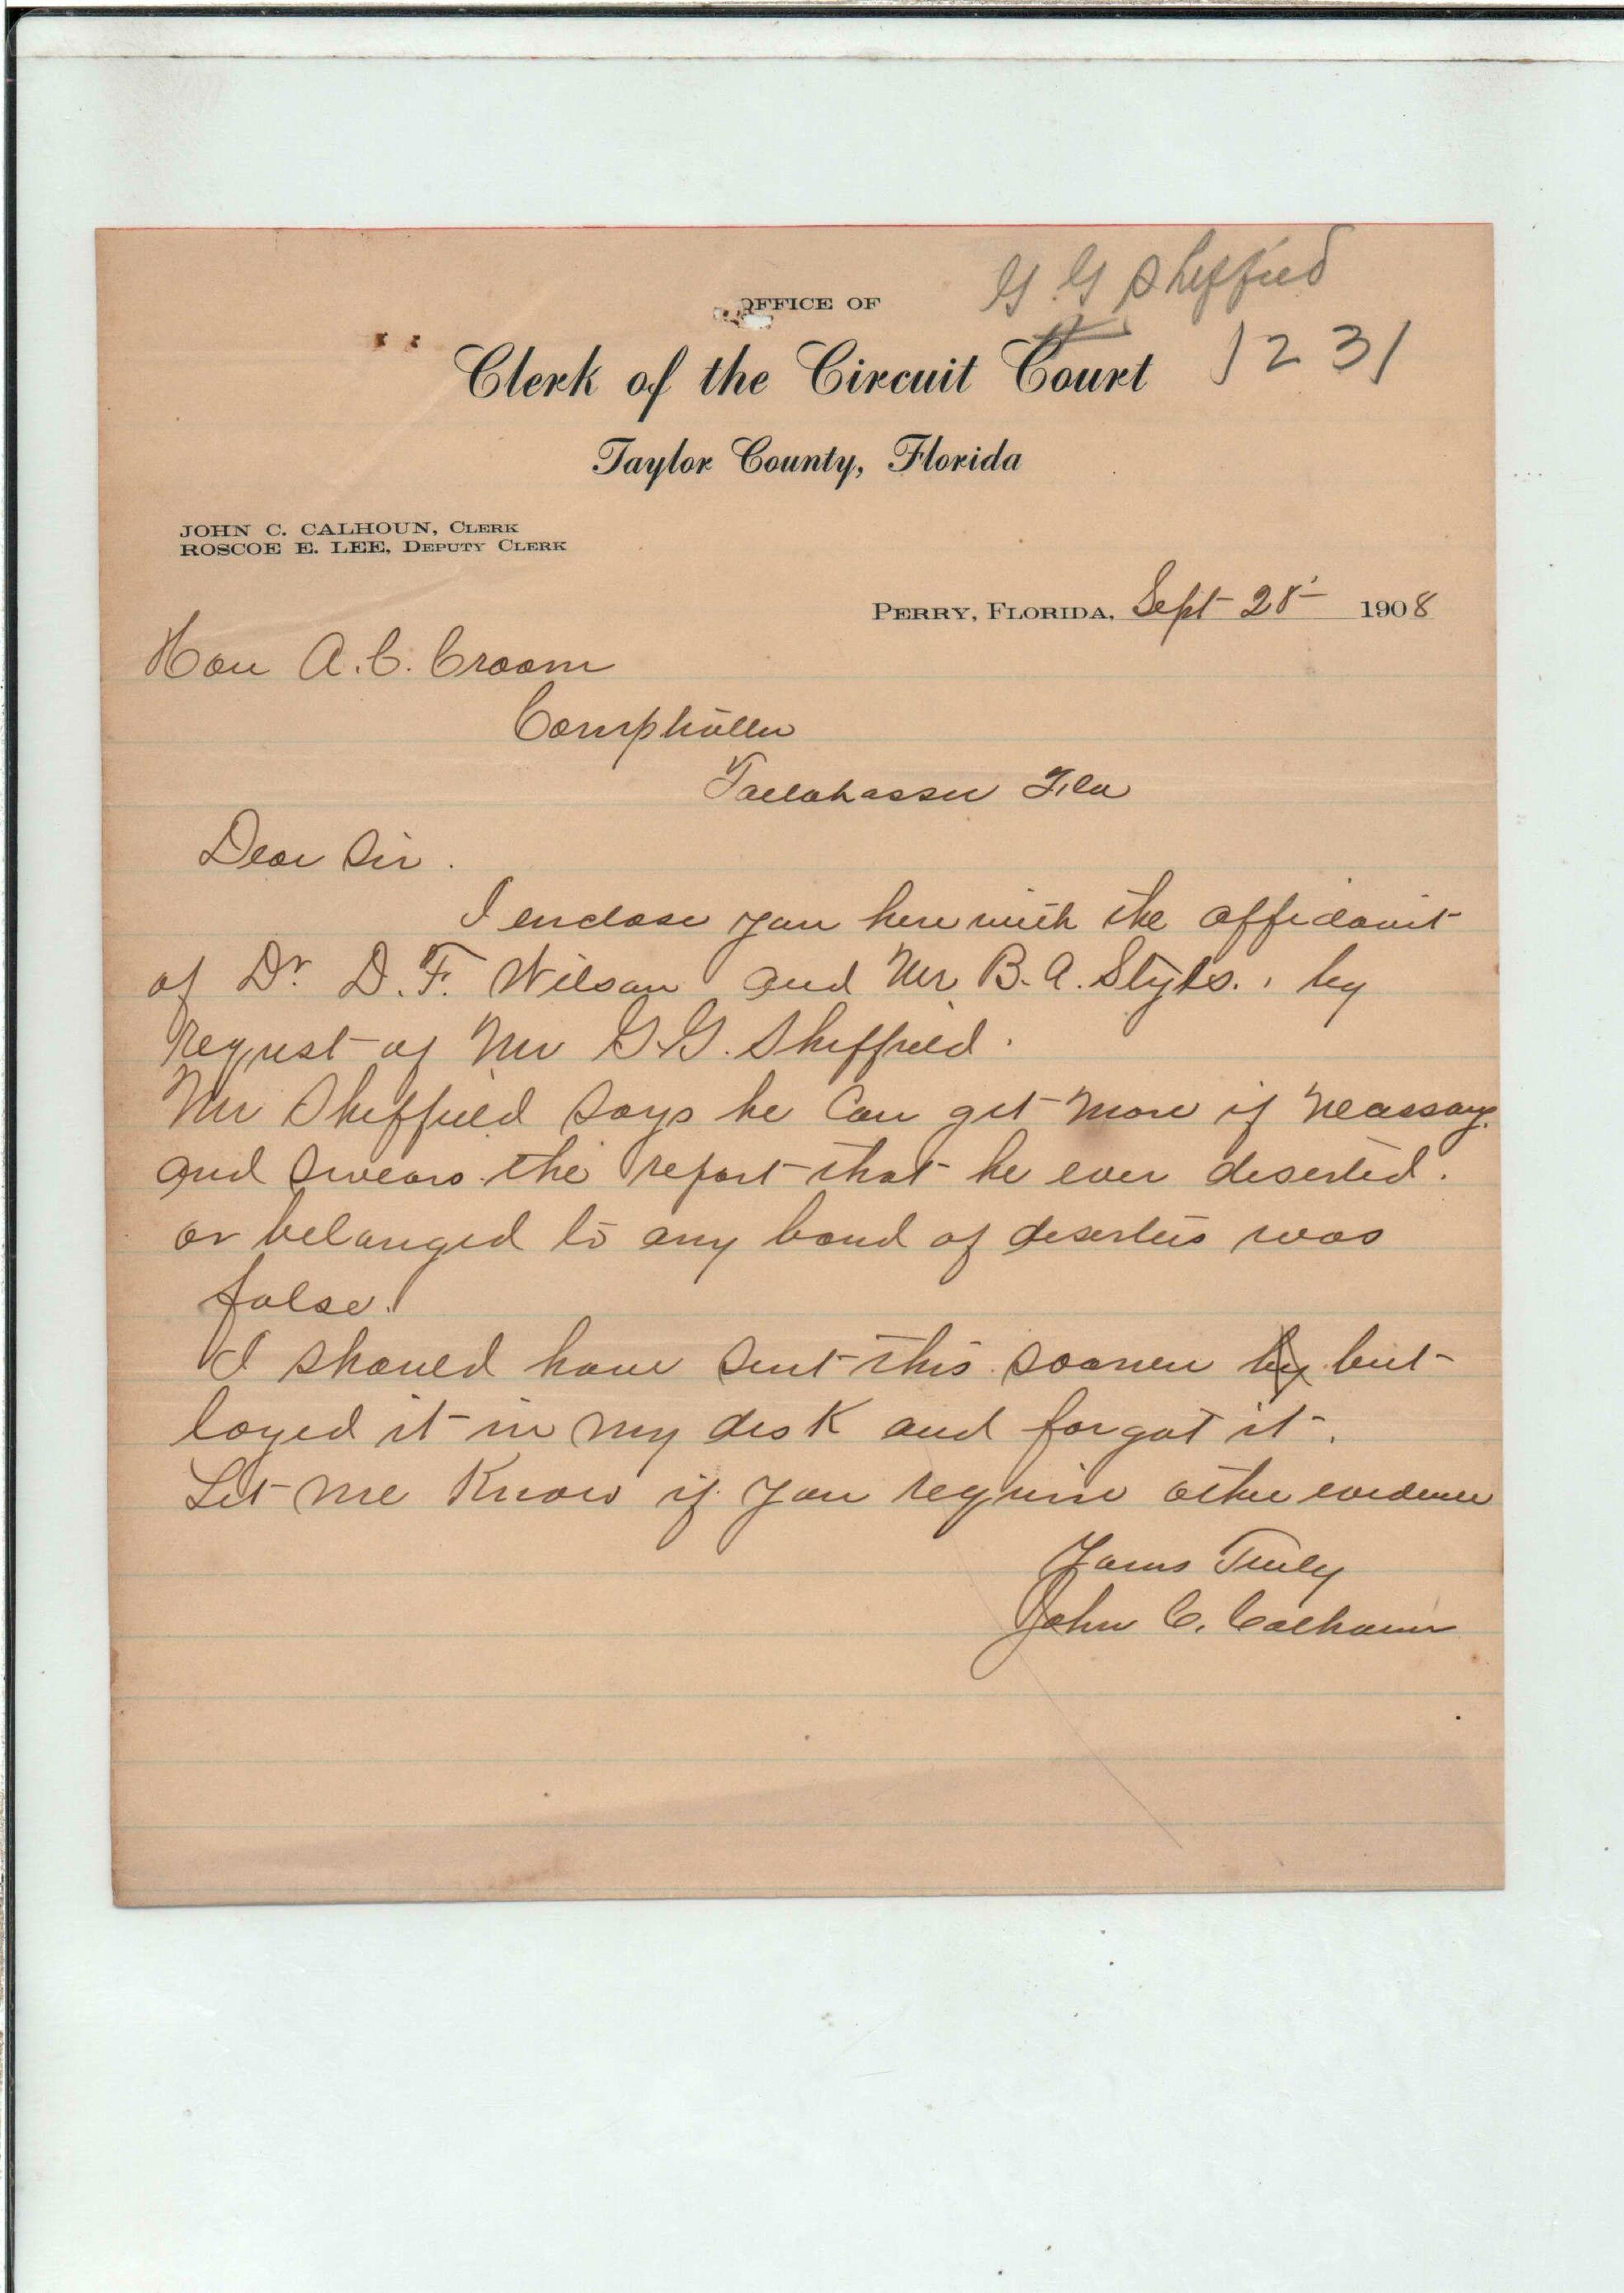 G. G Sheffied
OFFICE OF
1231
Clerk of the Circuit Court
Taylor County, Florida
JOHN C. CALHOUN, CLERK
ROSCOE E. LEE, DEPUTY CLERK
PERRY, FLORIDA, Sept 28 1908
Hon A. C. Croom
Comptroller
Tallahassee Fla
Dear Sir.
I enclose you here with the affidavit
of Dr. D. F. Wilson and Mr B. A. by
request of Mr G. G. Sheffield.
Mr Sheffield says he can get more if neassary.
and swears the report that he ever deserted.
or belonged to any band of deserters was
false.
I should have sent this sooner by but
layed it in my desk and forgot it.
Let me know if you require other evidence
Yours Truly
John C. Calhoun